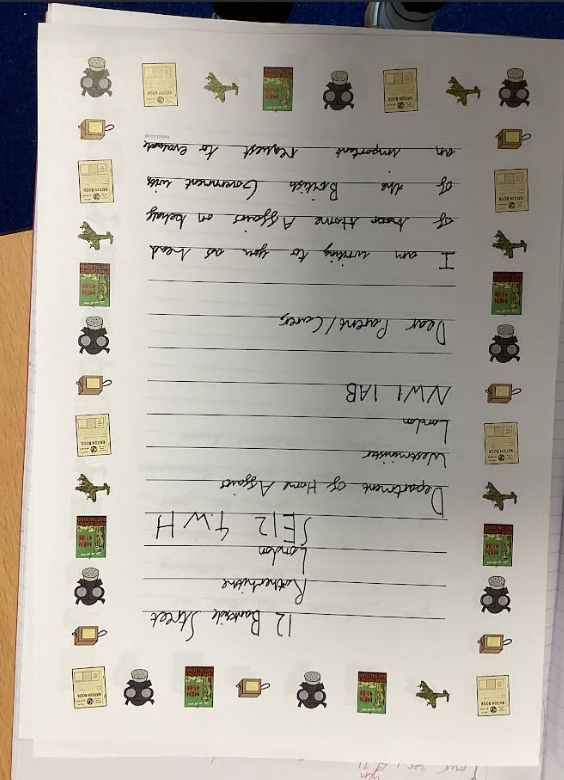 12 Bankside Street
Rotherhithe
London
SE12 4WH
Department of Home Affairs
Westminster
London
NW1 1AB
Dear Parent/Carers,
I am writing to you as head
of Home Affairs on behalf
of the British Government with
an important request to evacuate
RATION BOOK
MEN
41-55